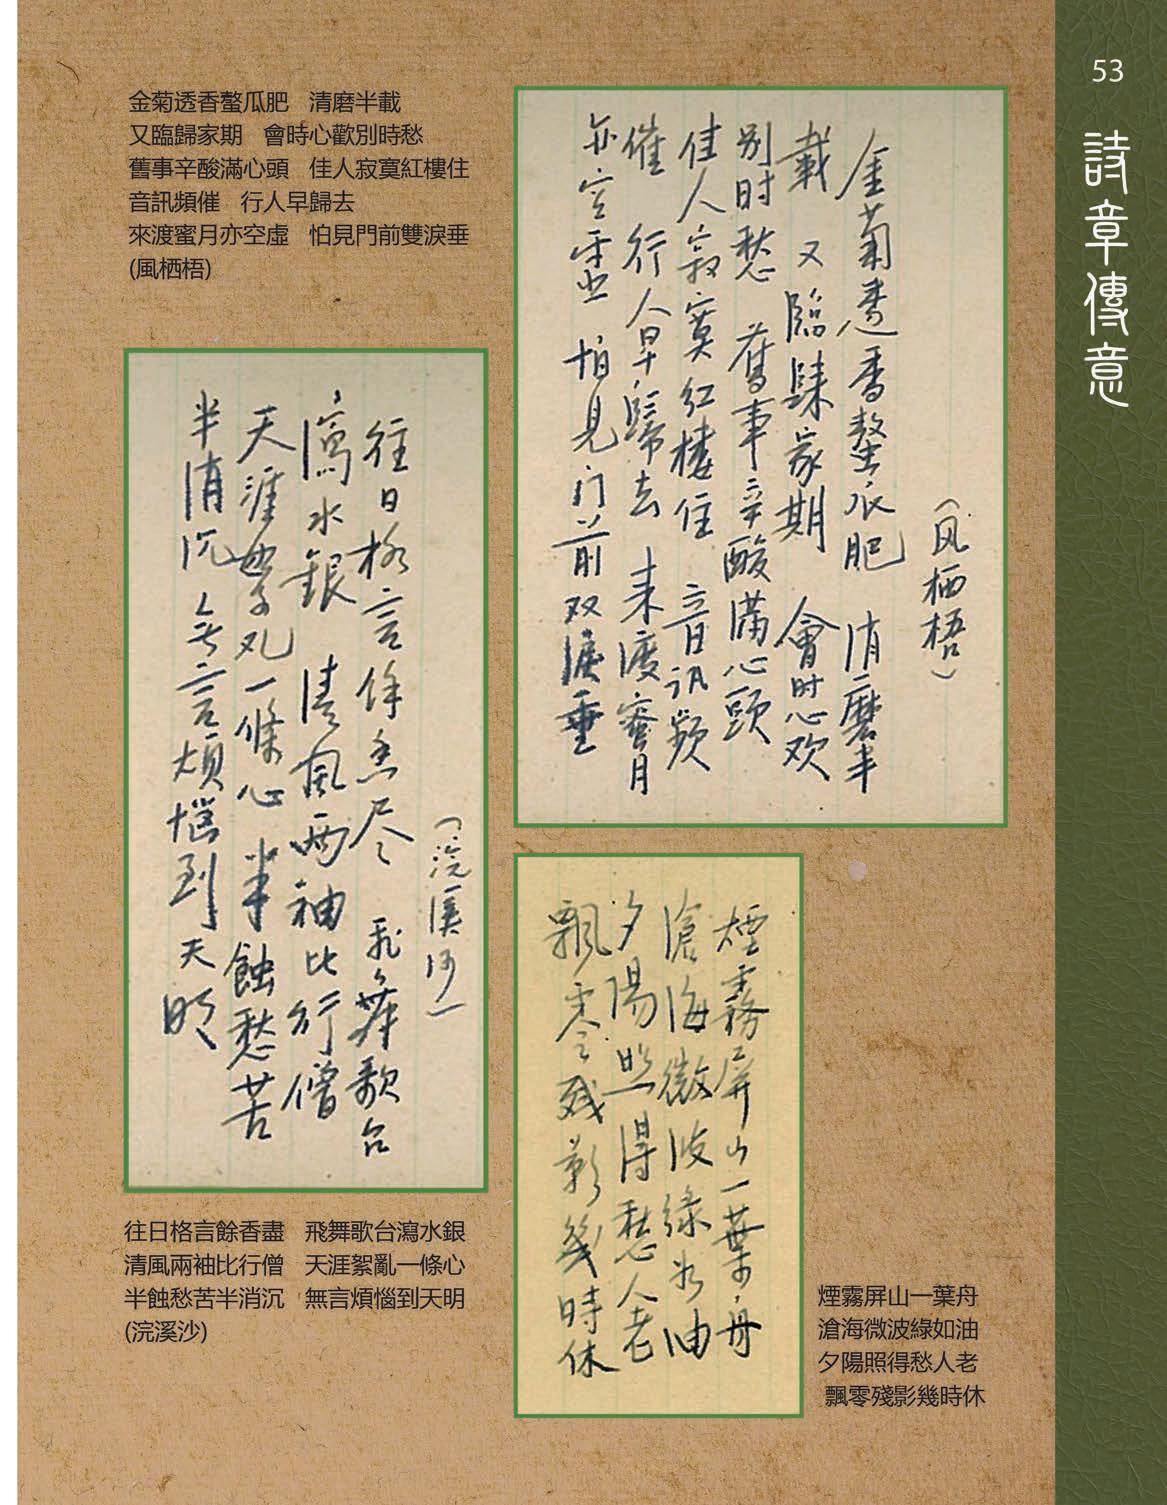 53
詩章傳意
金菊透香螯瓜肥 清磨半載
又臨歸家期 會時心歡別時愁
舊事辛酸滿心頭 佳人寂寞紅樓住
音訊頻催 行人早歸去
來渡蜜月亦空虛 怕見門前雙淚垂
(風栖梧)
(风栖梧)
金菊透香螯瓜肥 消磨半
載 又臨歸家期 會时心欢
别时愁 舊事辛酸滿心頭
佳人寂寞红樓住 音訊頻
催 行人早歸去 来渡蜜月
亦空虛 怕见门前双淚垂
(浣溪沙)
往日格言馀香尽 飛舞歌台
瀉水銀 清風两袖比行僧
天涯絮乱一條心 半蝕愁苦
半消沉 無言煩惱到天明
往日格言餘香盡 飛舞歌台瀉水銀
清風兩袖比行僧 天涯絮亂一條心
半蝕愁苦半消沉 無言煩惱到天明
(浣溪沙)
煙霧屏山一葉舟
滄海微波綠如油
夕陽照得愁人老
飄零残影幾時休
煙霧屏山一葉舟
滄海微波綠如油
夕陽照得愁人老
飄零殘影幾時休